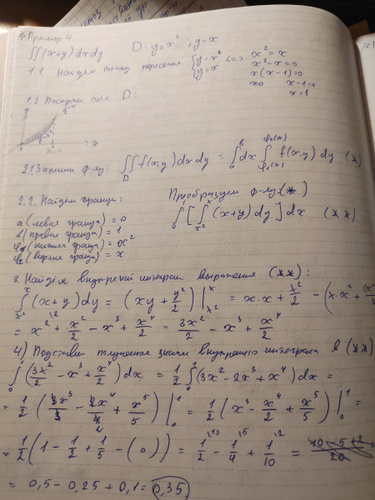 * Пример 4
∬(x+y)dxdy D: y=x² ; y=x
1.1 Найдём точки пересечения {y=x² y=x <=> x²=x
x²-x=0
x(x-1)=0
x=0 x-1=0
x=1
1.2 Построим обл. D:
2.1 Запишем ф-лу: ∬_D f(x;y)dxdy = ∫_a^b dx ∫_{φ₁(x)}^{φ₂(x)} f(x;y)dy (*)
2.2. Найдём границы: Преобразуем ф-лу (*)
a (левая граница) = 0
b (правая граница) = 1 ∫_0^1 [∫_{x²}^x (x+y)dy]dx (**)
φ₁ (нижняя граница) = x²
φ₂ (верхняя граница) = x
3. Найдём внутренний интеграл выражения (**):
∫_{x²}^x (x+y)dy = (xy + y²/2)|_{x²}^x = x·x + x²/2 - (x·x² +
= x² + x²/2 - x³ + x⁴/2 = 3x²/2 - x³ + x⁴/2
4) Подставим значение внутреннего интеграла в (**)
∫_0^1 (3x²/2 - x³ + x⁴/2)dx = 1/2 ∫_0^1 (3x² - 2x³ + x⁴)dx =
= 1/2 (3x³/3 - 2x⁴/4 + x⁵/5)|_0^1 = 1/2 (x³ - x⁴/2 + x⁵/5)|_0^1 =
= 1/2 (1 - 1/2 + 1/5 - (0)) = 1/2 - 1/4 + 1/10 =
= 0,5 - 0,25 + 0,1 = 0,35